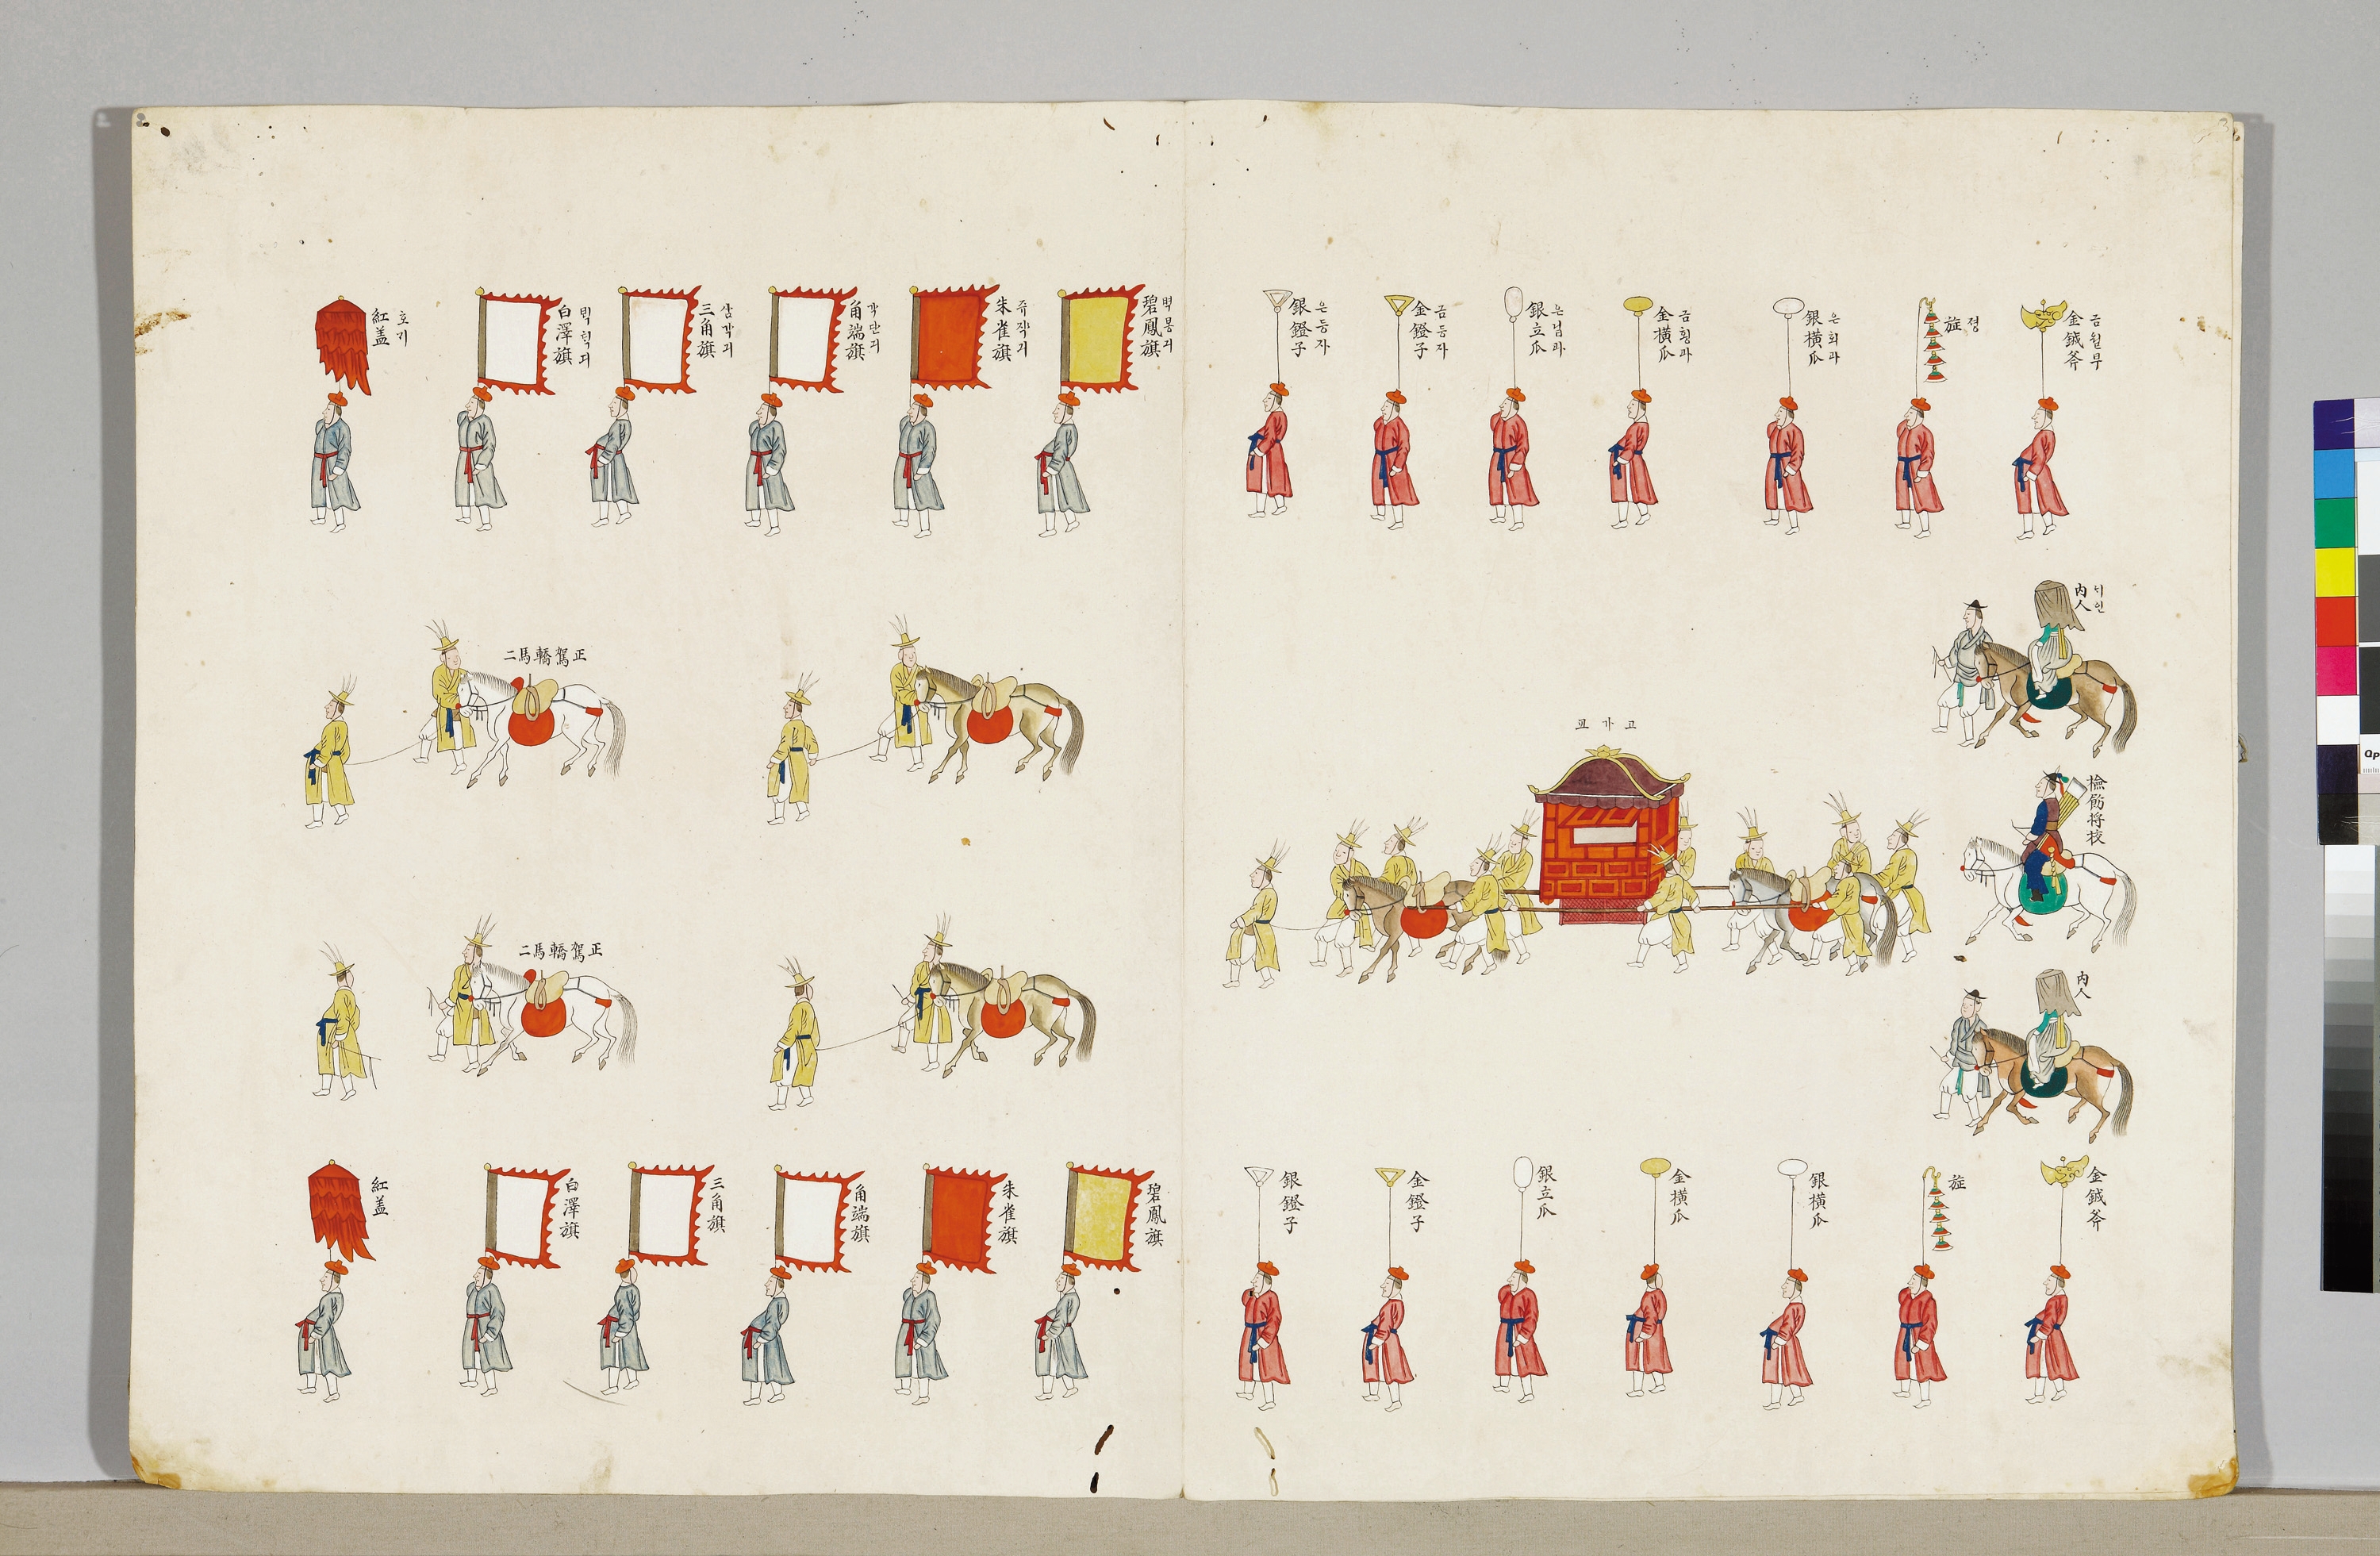 금월부
金鉞斧
졍
旌
銀橫瓜
금횡과
金橫瓜
은닙과
銀立瓜
금등자
金鐙子
은등자
銀鐙子
벽봉긔
碧鳳旗
쥬작기
朱雀旗
각단긔
角端旗
삼각긔
三角旗
ᄇᆡᆨᄐᆡᆨ긔
白澤旗
호기
紅盖
ᄂᆡ인
內人
撿飭将校
內人
고가교
正駕轎二馬
正駕轎二馬
金鉞斧
旌
銀橫瓜
金橫瓜
銀立瓜
金鐙子
銀鐙子
碧鳳旗
朱雀旗
角端旗
三角旗
白澤旗
紅盖